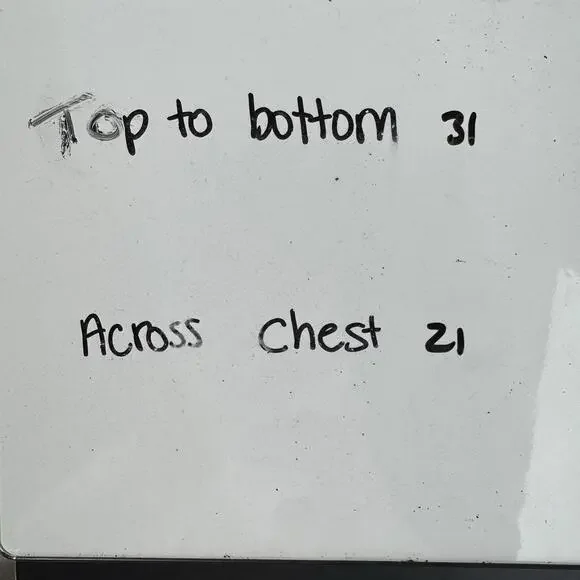 Top to bottom 31
Across Chest 21